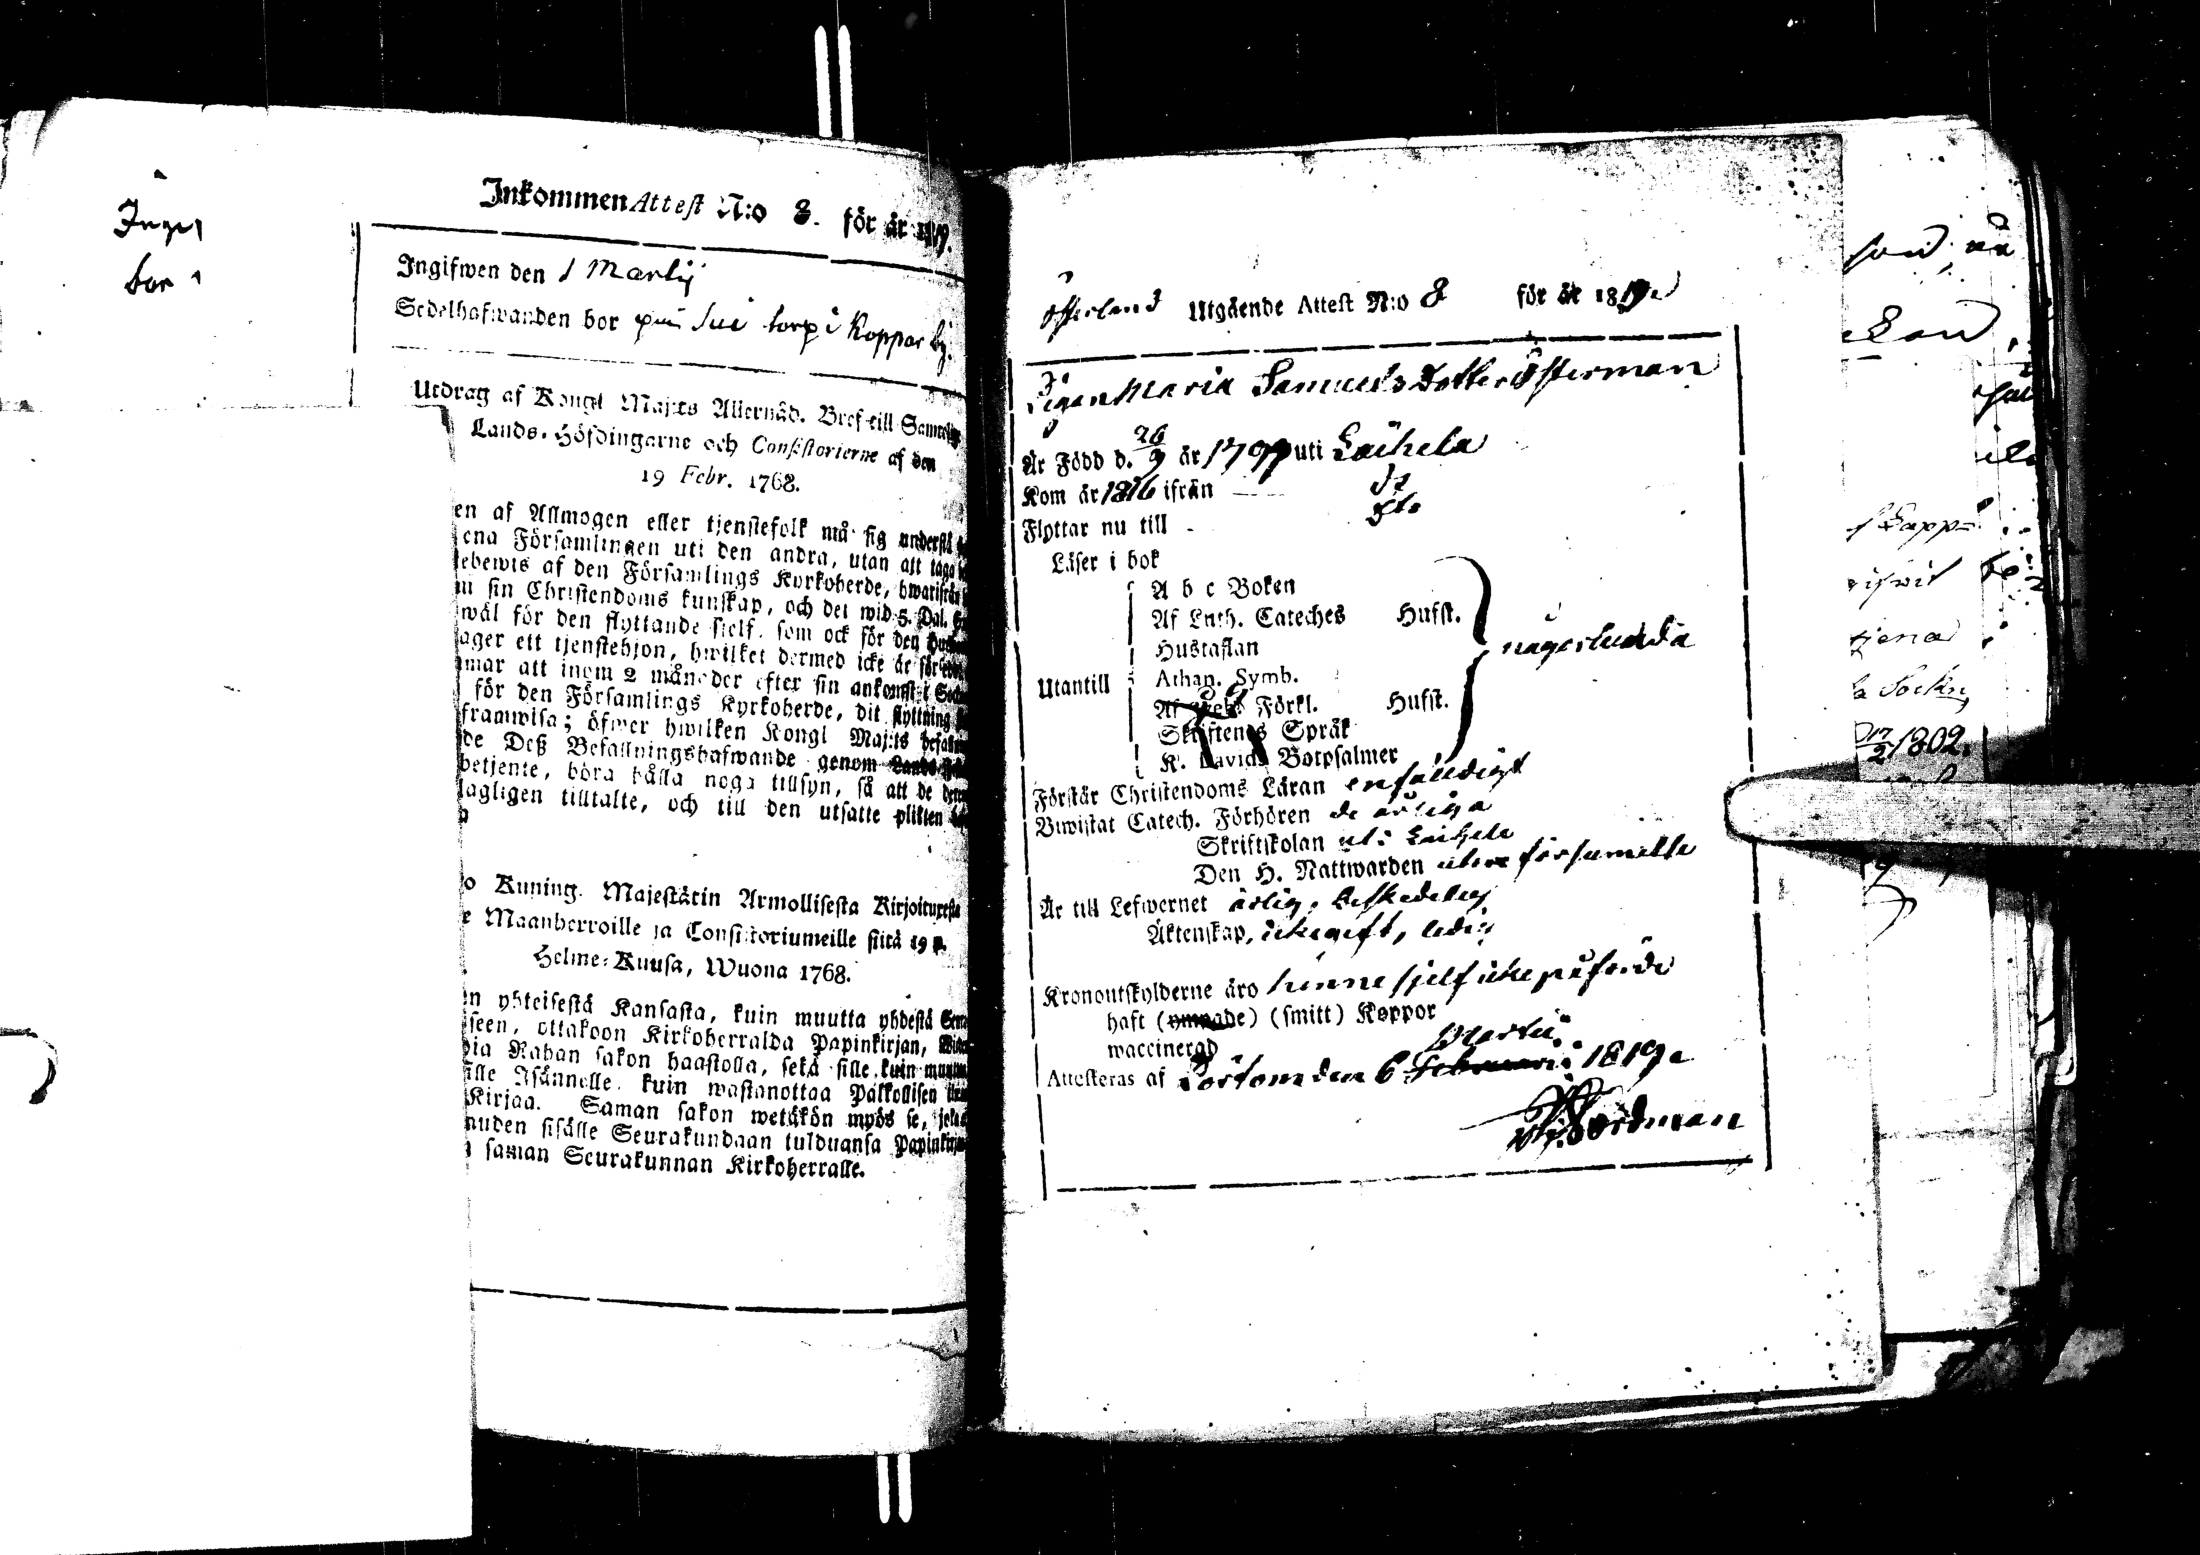 Inkommen Attest N:o 8. för år 1819.
Ingifwen den 1 Martij
Sedelhafwanden bor på torp i Koppar by.
Utdrag af Kongl Maj:ts Allernåd. Bref till Samtelige
Lands-Höfdingarne och Consistorierne af den
19 Febr. 1768.
en af Allmogen eller tjenstefolk må sig understå
ena Församlingen uti den andra, utan att taga
ebewis af den Församlings Kyrkoherde, hwarifrån
m sin Christendoms kunskap, och det wid 5. Dal.
wäl för den flyttande sielf, som ock för den
ager ett tjenstehjon, hwilket dermed icke är
mar att inom 2 månader efter sin ankomst i
för den Församlings Kyrkoherde, dit flyttning
framwisa; öfwer hwilken Kongl Maj:ts befal
de Deß Befallningshafwande genom Lands
betjente, böra hålla noga tillsyn, så att de
lagligen tilltalte, och till den utsatte plikten
o Kuning. Majestätin Armollisesta Kirjoituxesta
Maanherroille ja Consistoriumeille siitä 19 p.
Helme-Kuusa, Wuona 1768.
n yhteisestä Kansasta, kuin muutta yhdestä
seen, ottakoon Kirkoherralda Papinkirjan,
ia Rahan sakon haastolla, sekä sille, kuin
ille Isännelle, kuin wastanottaa Palkollisen
Kirjaa. Saman sakon wetäkön myös se, joka
uden sisälle Seurakundaan tulduansa Papinkirja
saman Seurakunnan Kirkoherralle.
Inge
bor
Österland Utgående Attest N:o 8 för år 1819
Pigan Maria Samuels Dotter Österman
Är Född d. 26/9 år 1797 uti Laihela
Kom år 1816 ifrån do
Flyttar nu till do
Läser i bok
A b c Boken
Af Luth. Cateches Hufst.
Hustaflan
Utantill Athan. Symb. någorlunda
Af Förkl. Hufst.
Skriftenes Språk
K. Davids Botpsalmer
Förstår Christendoms Läran enfäldigt
Biwistat Catech. Förhören de årliga
Skriftskolan uti Laihela
Den H. Nattwarden utan försumelse
Är till Lefwernet ärlig, beskedelig
Äktenskap, icke gift, ledig
Kronoutskylderne äro henne sjelf icke påförde
haft (ympade) (smitt) Koppor
waccinerad
Martii
Attesteras af Pörtom den 6 Februarii 1819
Nordman
17/2 1802.
tjena
Sockn